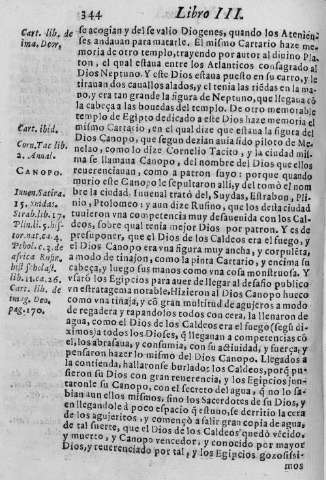 344
Libro III.
Cart. lib. de
ima. Deor,
Cart. ibid.
Corn. Tac. lib.
2. Annal.
CANOPO.
15. suidas.
Strab. lib. 17.
Plin. li. 5. his-
tor. nat. ca. 4.
Pthol. c. 3. de
africa Rufin.
hist scholast.
lib. 11. ca. 26.
Cart. lib. de
imag. Deo,
pag. 170.
se acogian y del se valio Diogenes, quando los Atenién-
ses andauan para matarle. El mismo Cartario haze me-
moria de otro templo, trayendo por autor al diuino Pla-
ton, el qual estaua entre los Atlanticos consagrado al
Dios Neptuno. Y este Dios estaua puesto en su carro, y le
tirauan dos cauallos alados, y el tenia las riēdas en la ma-
no, y era tan grande la figura de Neptuno, que llegaua cō
la cabeça a las bouedas del templo. De otro memorable
templo de Egipto dedicado a este Dios haze memoria el
mismo Cartario, en el qual dize que estaua la figura del
Dios Canopo, que segun dezian auia sido piloto de Me-
nelao, como dize Cornelio Tacito, y la ciudad mis-
ma se llamaua Canopo, del nombre del Dios que ellos
reuerenciauan, como a patron suyo: porque quando
murio este Canopo le sepultaron alli, y del tomò el nom
bre la ciudad. Iuuenal trata del, Suydas, Estrabon, Pli-
nio, Ptolomeo: y aun dize Rufino, que los desta ciudad
tuuieron vna competencia muy desauenida con los Cal-
deos, sobre qual tenia mejor Dios por patron. Y es de
presuponer, que el Dios de los Caldeos era el fuego, y
el Dios Canopo era vna figura muy ancha, y corpulēta,
a modo de tinajon, como la pinta Cartario, y encima la
cabeça, y luego sus manos como vna cosa monstruosa. Y
vsarō los Egipcios para auer de llegar al desafio publico
vna estratagema notable. Hizieron al Dios Canopo hueco
como vna tinaja, y cō gran multitud de agujeros a modo
de regadera y tapandolos todos con cera, la llenaron de
agua, como el Dios de los Caldeos era el fuego (segū di-
ximos) a todos los Dioses, q̄ llegauan a competencias cō
el, los abrasaua, y consumia, con su actiuidad, y fuerça, y
pensaron hazer lo mismo del Dios Canopo. Llegados a
la contienda, hallaronse burlados: los Caldeos, porq̄ pu-
sieron su Dios con gran reuerencia, y los Egipcios jun-
taronle su Canopo, con el secreto del agua, q̄ no lo sa-
bian aun ellos mismos, sino los Sacerdotes de su Dios, y
en llegandole à poco espacio q̄ estuuo, se derritio la cera
de los agujeritos, y començò a salir gran copia de agua,
de tal suerte, que el Dios de los Caldeos quedò vēcido,
y muerto, y Canopo vencedor, y conocido por mayor
Dios, y reuerenciado por tal, y los Egipcios gozosissi-
mos